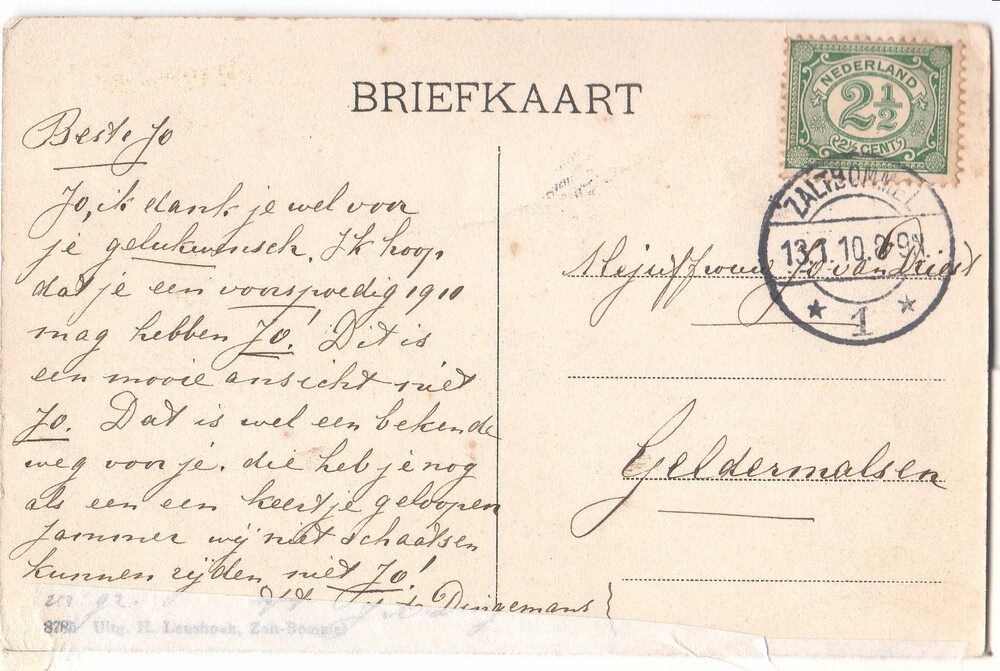 BRIEFKAART
NEDERLAND
2½
2½ CENT
ZALTBOMMEL
13.1.10.8-9V.
1
Beste Jo
Jo, ik dank je wel voor
je gelukwensch. Ik hoop
dat je een voorspoedig 1910
mag hebben Jo! Dit is
een mooie ansicht niet
Jo. Dat is wel een bekende
weg voor je. die heb je nog
als een een keertje geloopen
Jammer wij niet schaatsen
kunnen rijden niet Jo!
Dingemans
Mejuffrouw Jo van Driest
Geldermalsen
8785 Uitg. H. Leushoek, Zalt-Bommel